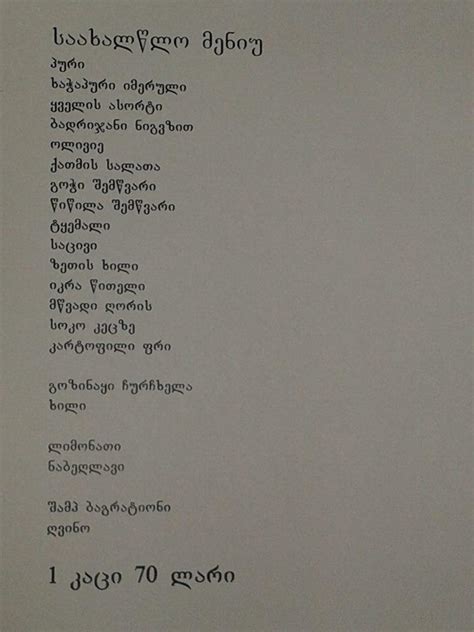 საახალწლო მენიუ
პური
ხაჭაპური იმერული
ყველის ასორტი
ბადრიჯანი ნიგვზით
ოლივიე
ქათმის სალათა
გოჭი შემწვარი
წიწილა შემწვარი
ტყემალი
საცივი
ზეთის ხილი
იკრა წითელი
მწვადი ღორის
სოკო კეცზე
კარტოფილი ფრი
გოზინაყი ჩურჩხელა
ხილი
ლიმონათი
ნაბეღლავი
შამპ ბაგრატიონი
ღვინო
1 კაცი 70 ლარი